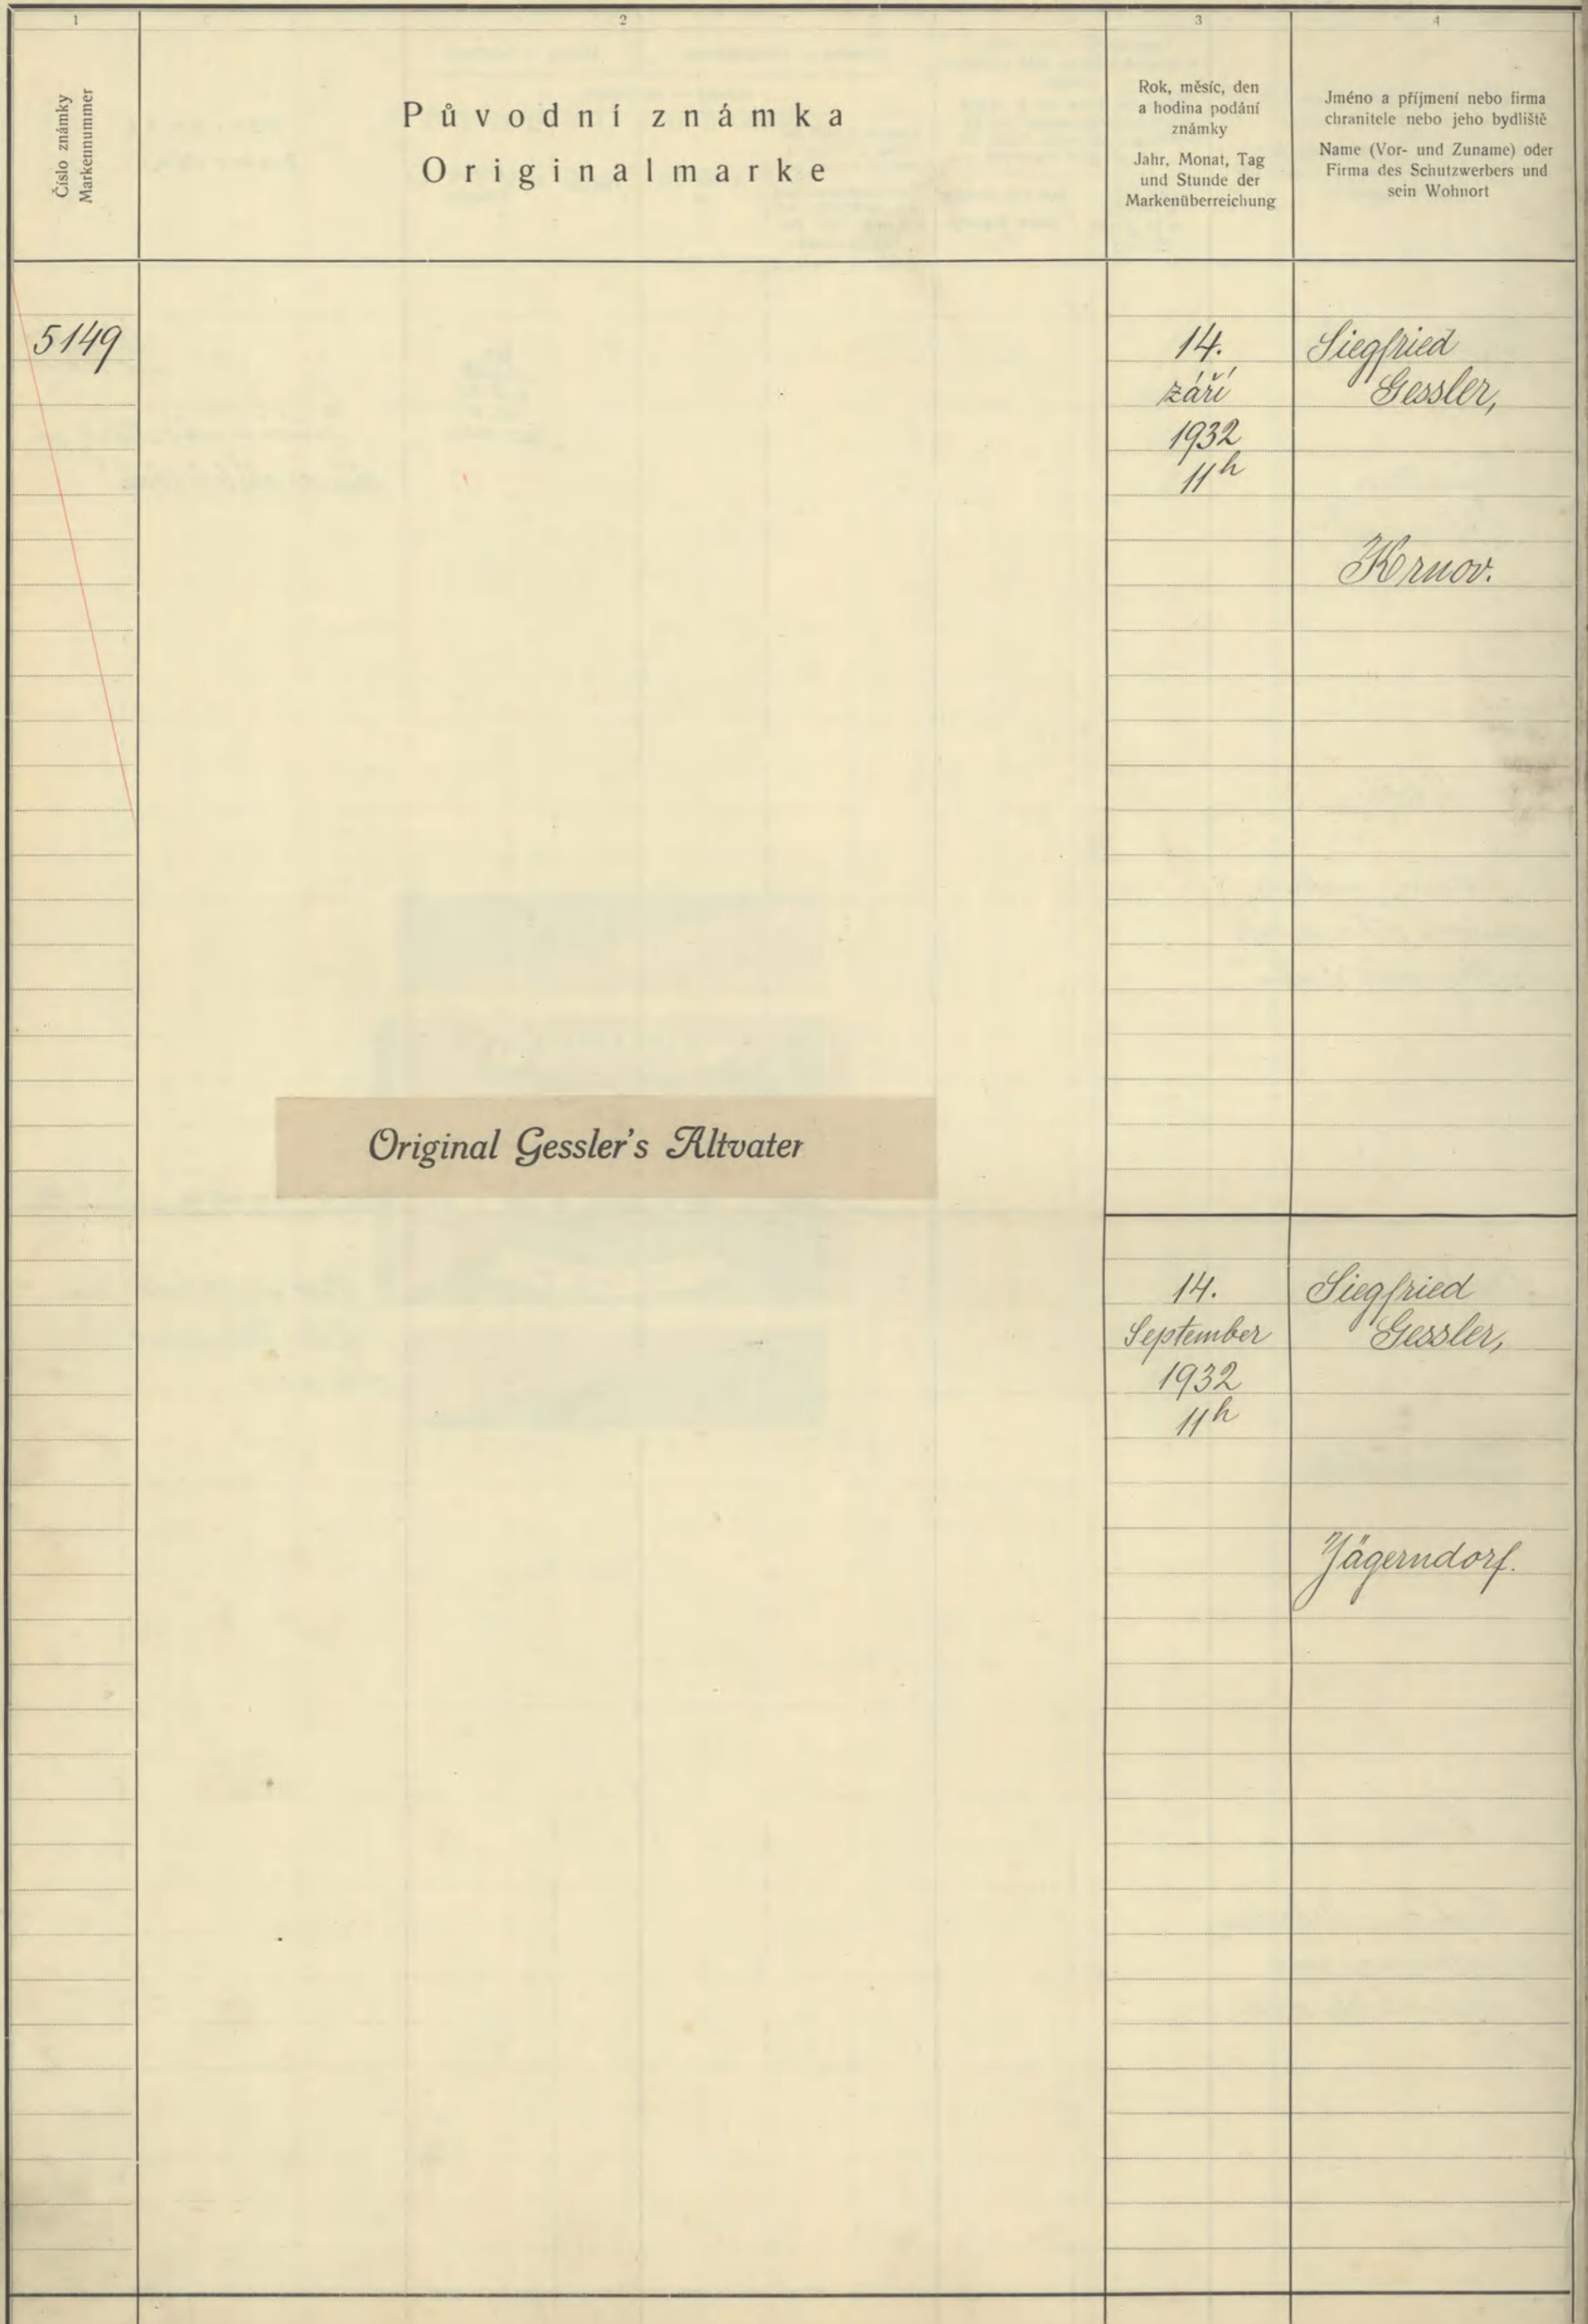 1
2
3
4
Číslo známky
Markennummer
Původní známka
Originalmarke
Rok, měsíc, den
a hodina podání
známky
Jahr, Monat, Tag
und Stunde der
Markenüberreichung
Jméno a příjmení nebo firma
chranitele nebo jeho bydliště
Name (Vor- und Zuname) oder
Firma des Schutzwerbers und
sein Wohnort
5149
14.
září
1932
11h
Siegfried
Gessler,
Krnov.
Original Gessler's Altvater
14.
September
1932
11h
Siegfried
Gessler,
Jägerndorf.